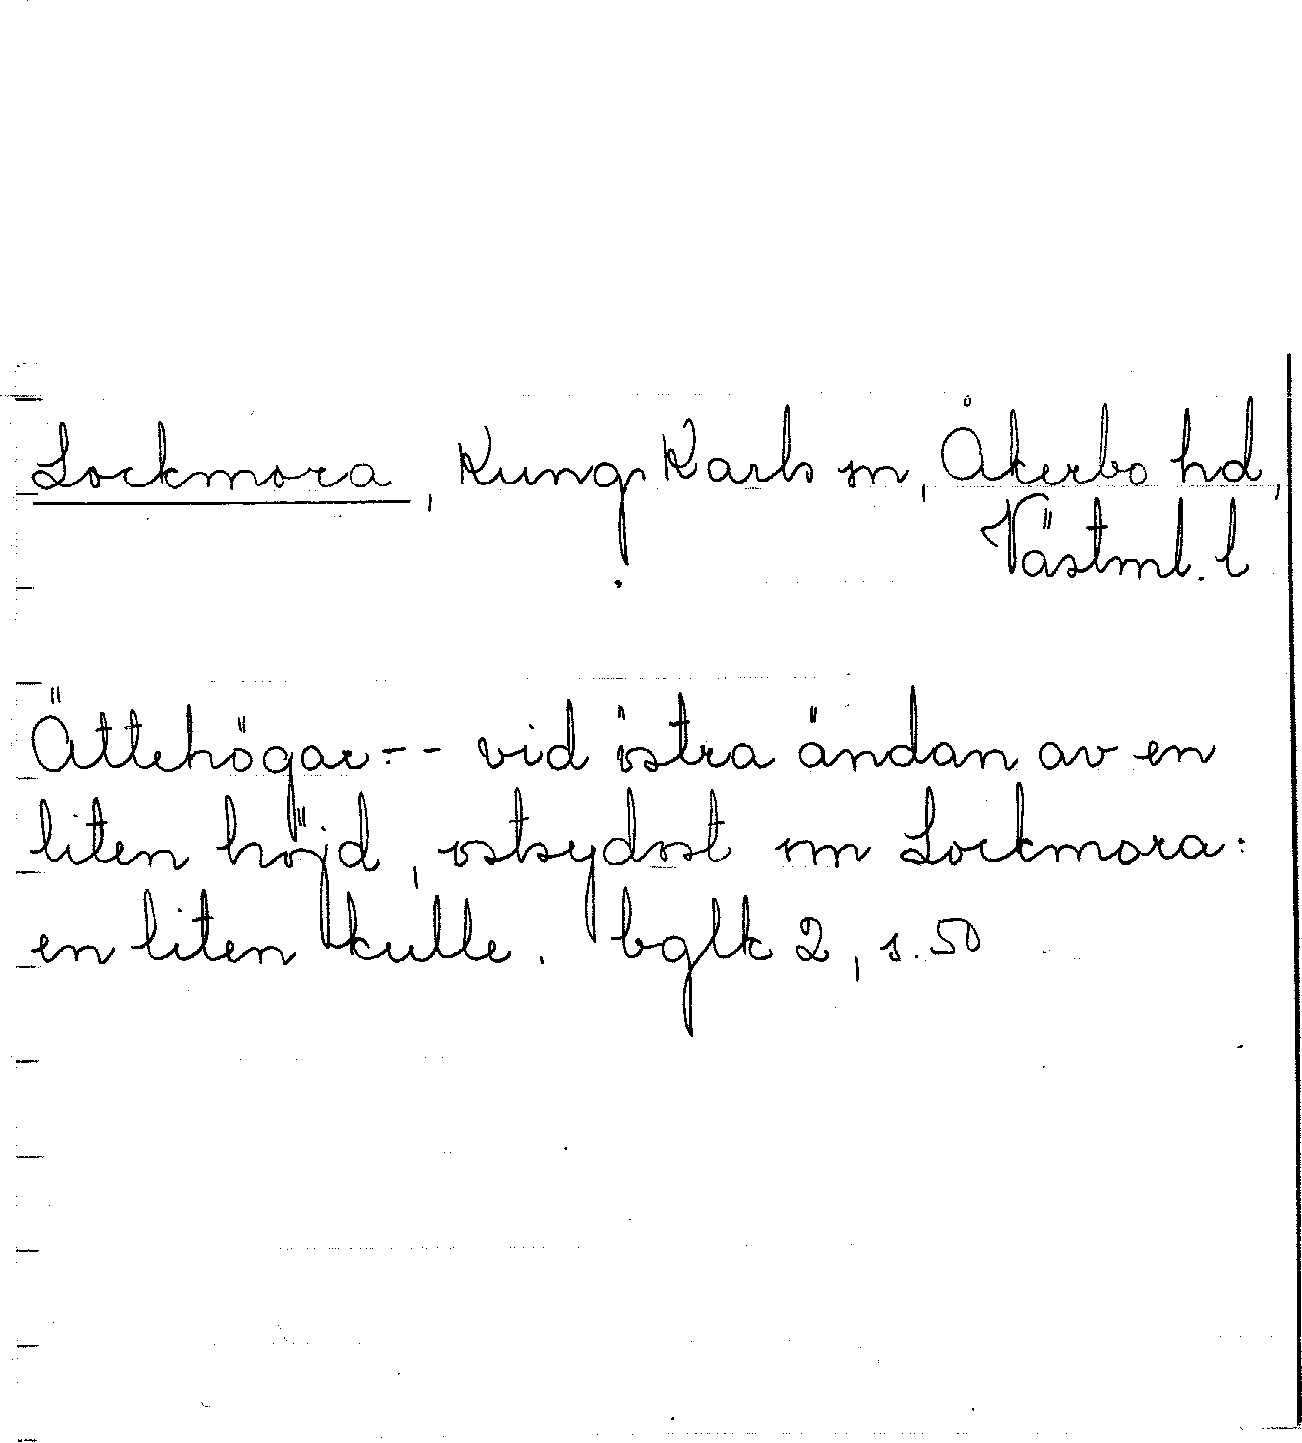 Lockmora, Kung Karls sn, Åkerbo hd,
Västml. l
Ättehögar -- vid östra ändan av en
liten höjd, ostsydost om Lockmora:
en liten kulle. bglk 2, s. 50